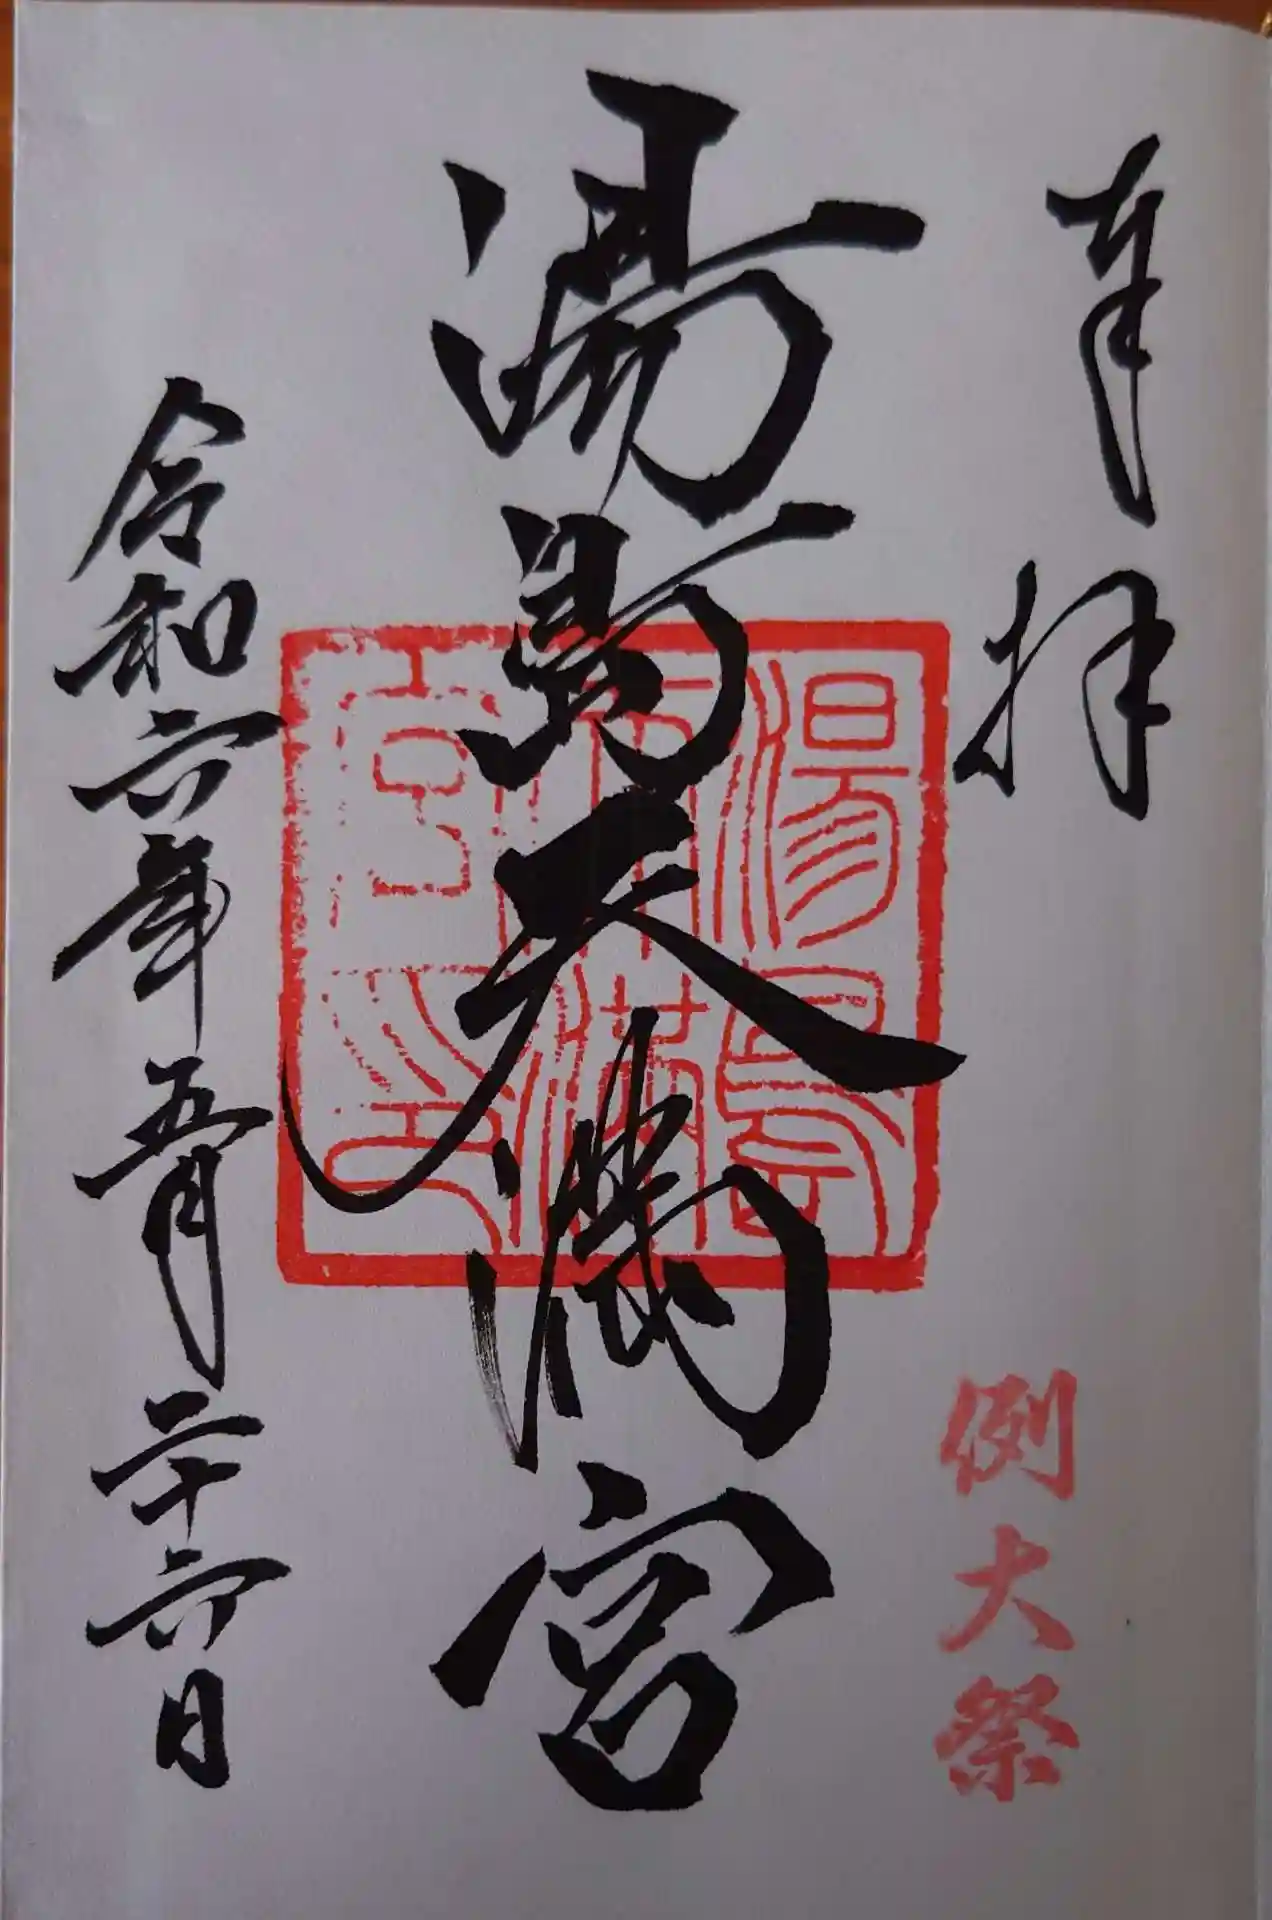 奉拝
例大祭
湯島天満宮
湯島
天満
宮印
令和六年五月二十六日